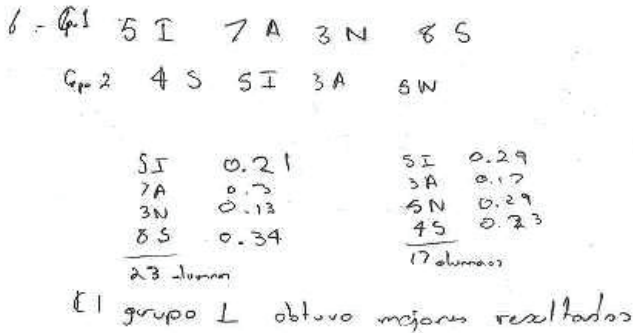 6.- Gp1 5 I 7 A 3 N 8 S
Gpo 2 4 S 5 I 3 A 5 N
5 I 0.21
7 A 0.3
3 N 0.13
8 S 0.34
23 alumnos
5 I 0.29
3 A 0.17
5 N 0.29
4 S 0.23
17 alumnos
El grupo 1 obtuvo mejores resultados